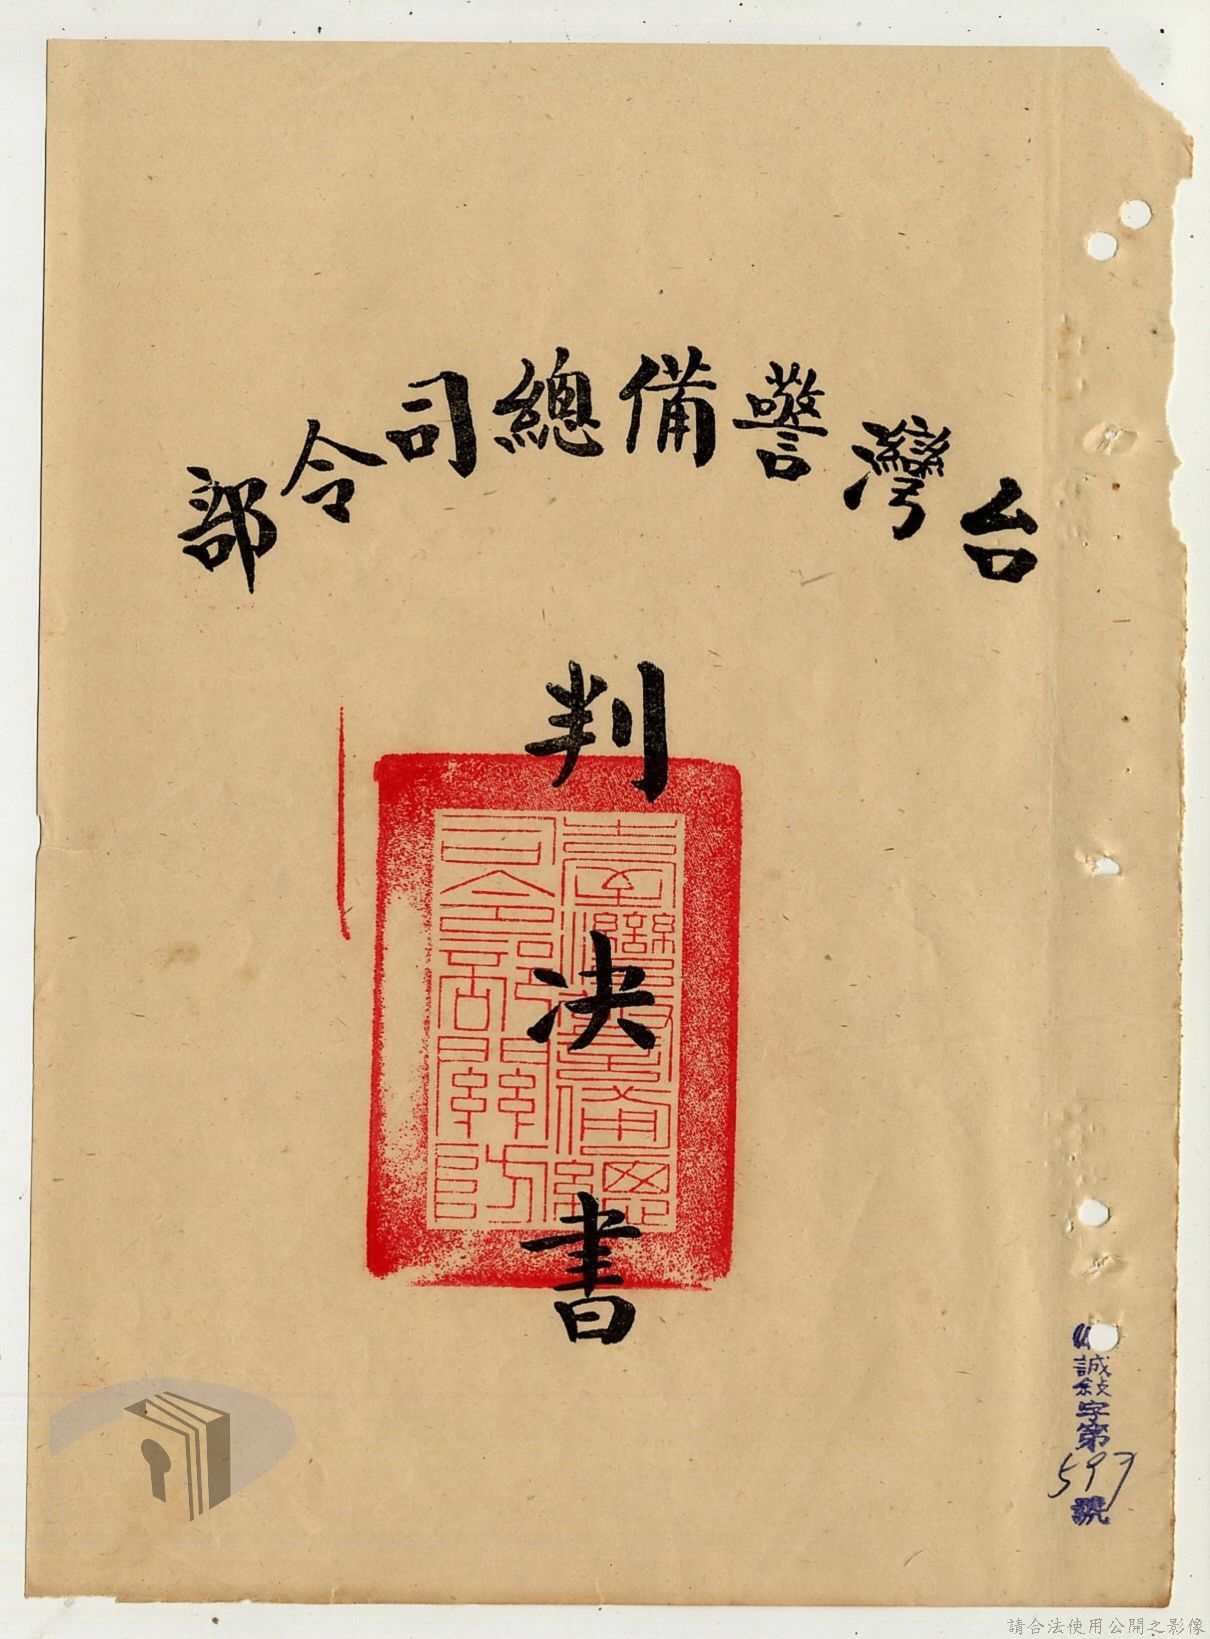 台灣警備總司令部
判決書
臺灣警備總
司令部關防
誠敍字第597號
請合法使用公開之影像